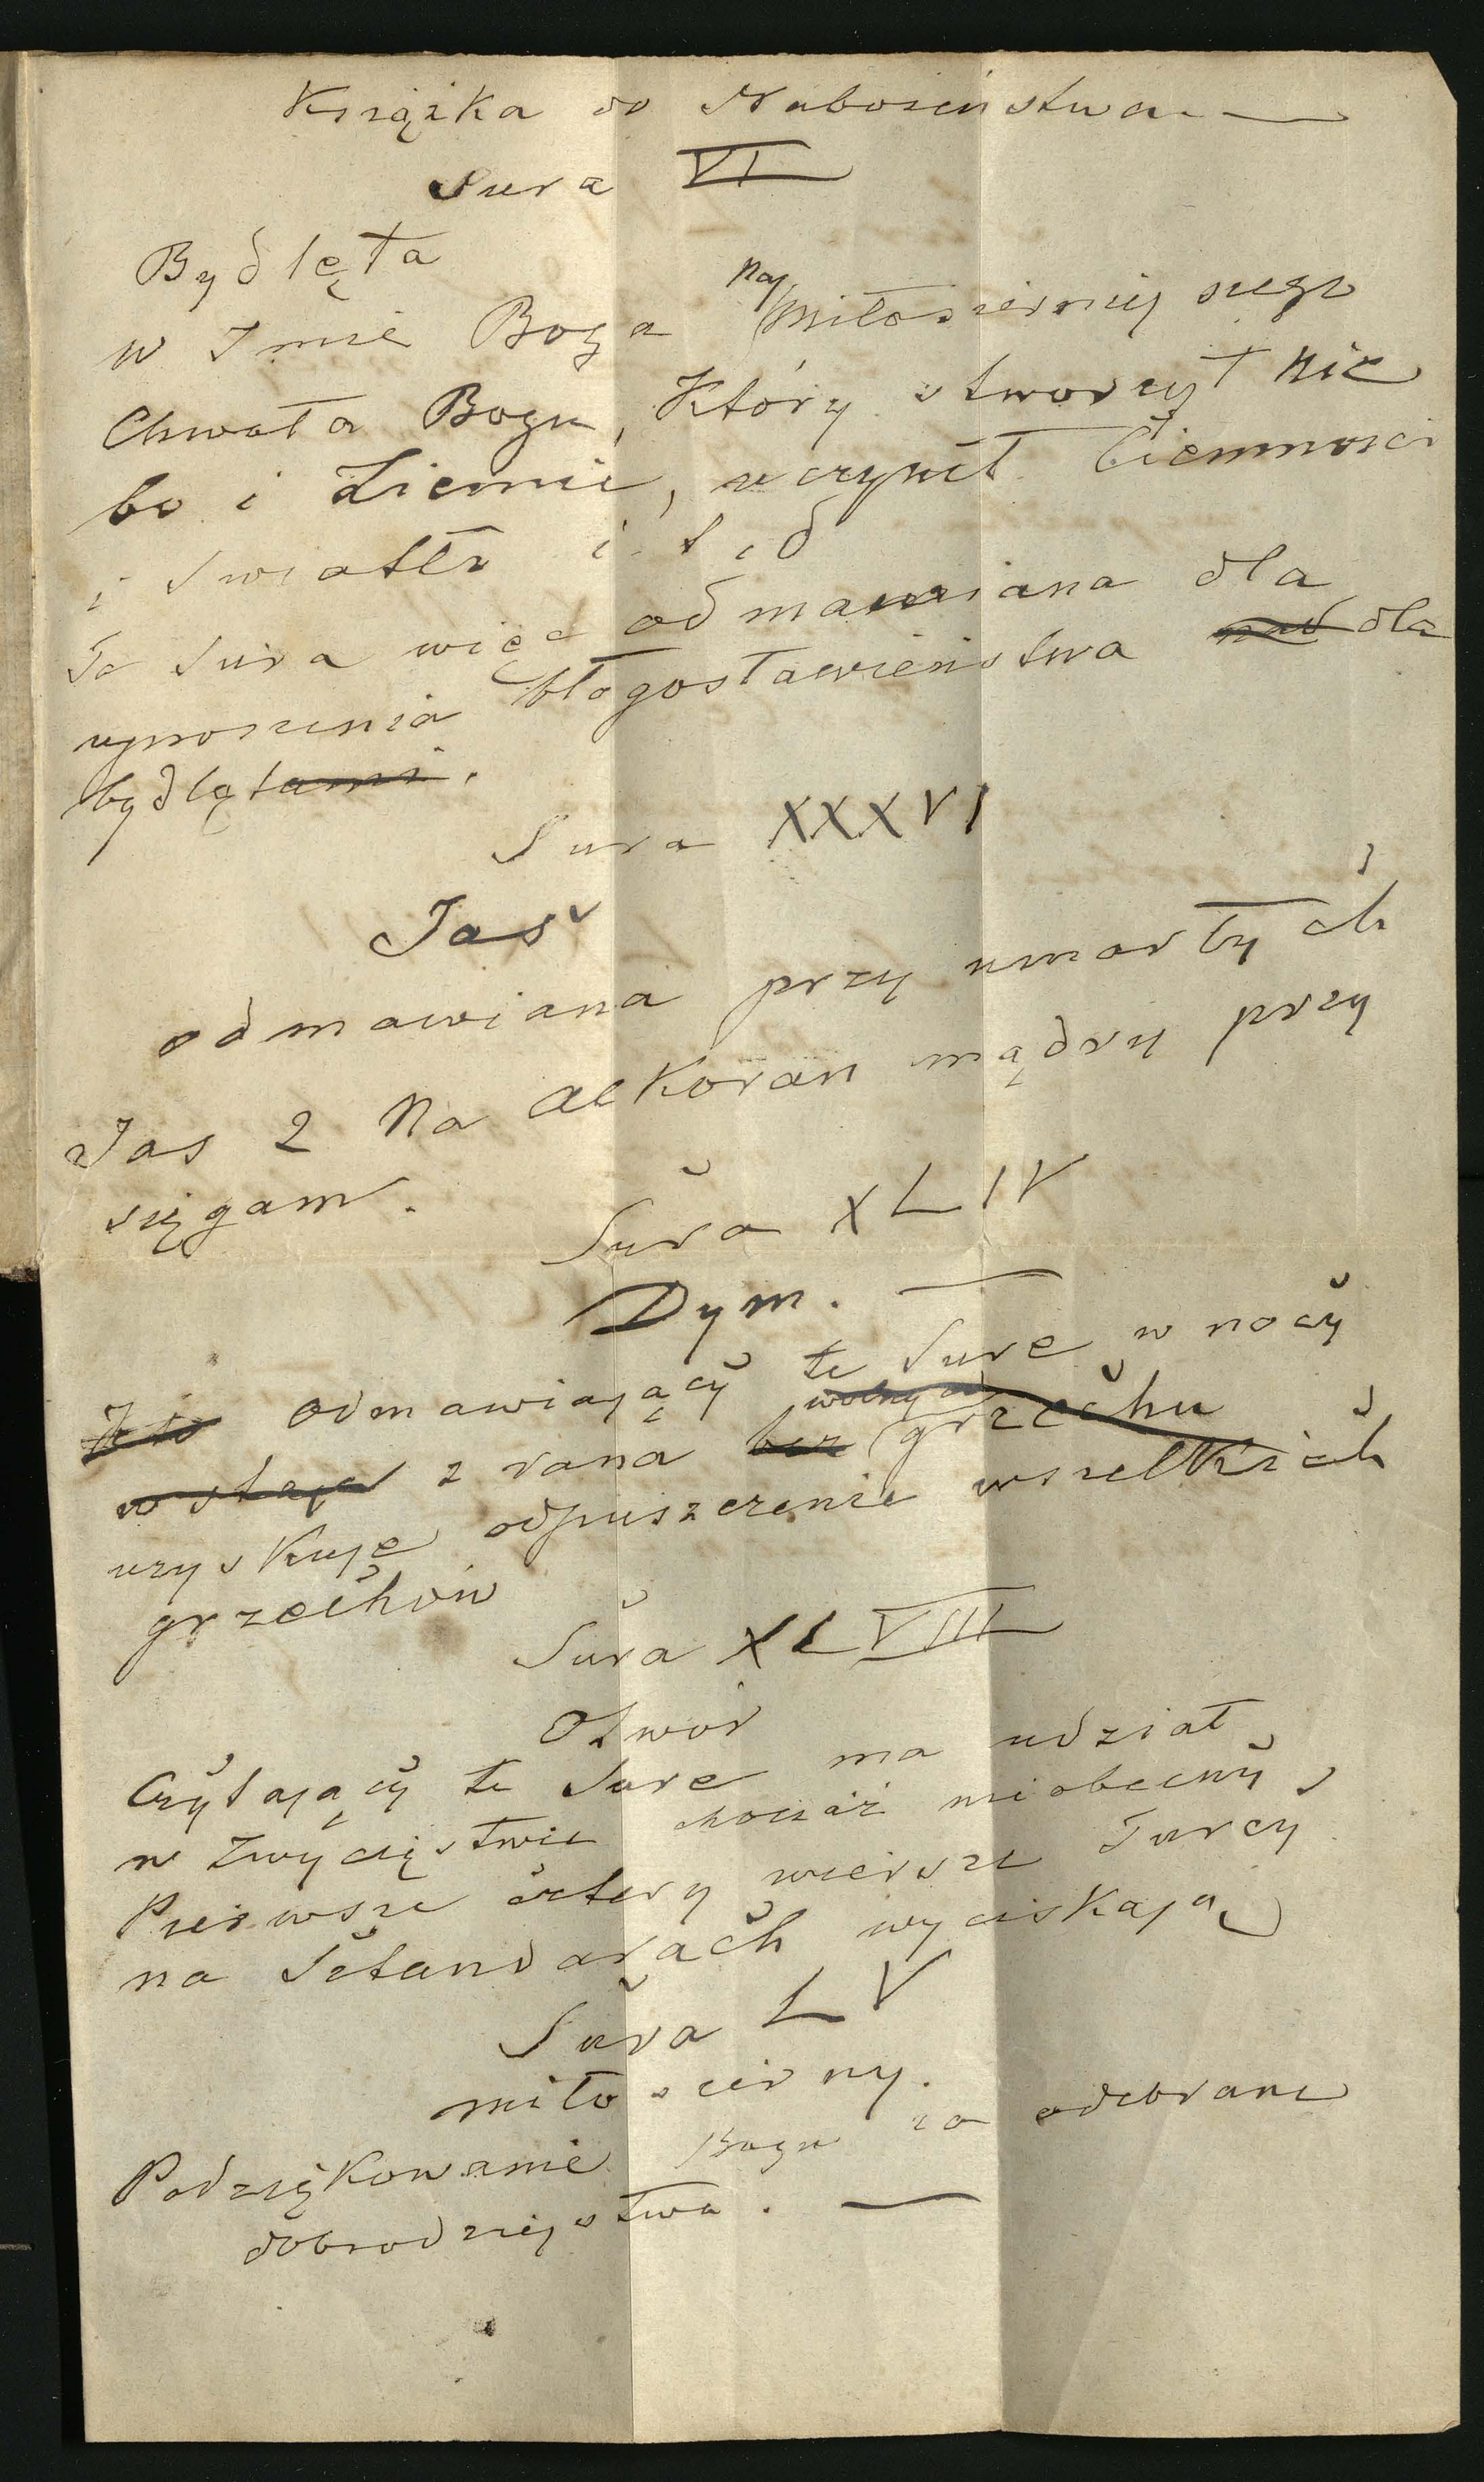 Książka do Nabożeństwa
Sura VI
Bydlęta
w Imie Boga Najmiłosierniejszego
Chwała Bogu, Który stworzył Nie
bo i Ziemie, uczynił Ciemnosci
i Swiatło i t. d
Ta Sura więc odmawiana dla
uproszenia błogosławieństwa nad dla
bydlętami.
Sura XXXVI
Jas
odmawiana przy umarłych
Jas 2 Na alkoran mądry przy
sięgam.
Sura XLIV
Dym.
Kto odmawiający te Sure w nocy
wstaje z rana bez wolny od grzechu
uzyskuje odpuszczenie wszelkich
grzechów
Sura XLVIII
Otwór
Czytający te Sure ma udział
w Zwycięstwie chociaż nieobecny
Pierwsze cztery wiersze Turcy
na Sztandarach wyciskają
Sura LV
miłosierny.
Podziękowanie Bogu za odebrane
dobrodziejstwa.